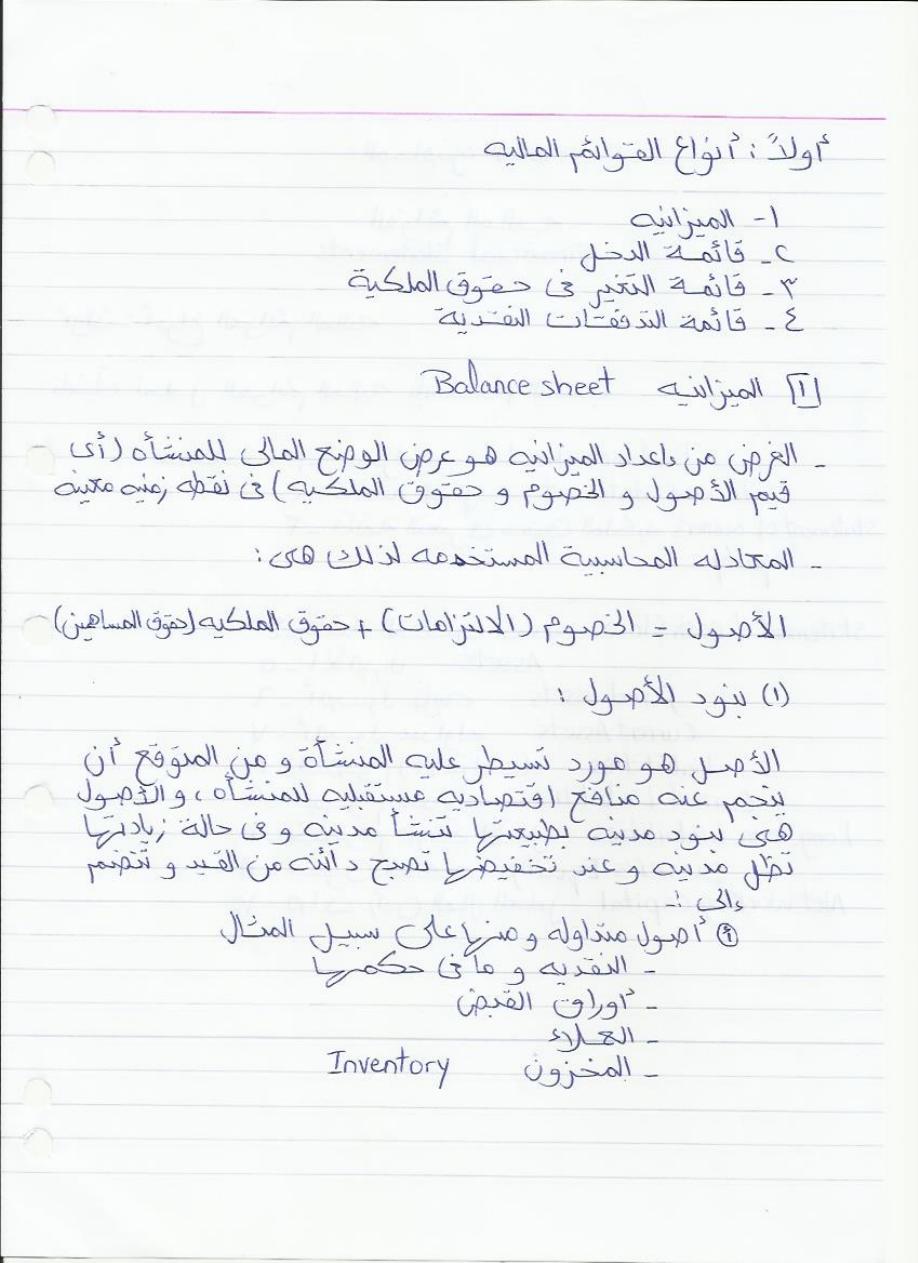 أولاً : أنواع القوائم الماليه
١- الميزانيه
٢- قائمة الدخل
٣- قائمة التغير فى حقوق الملكية
٤- قائمة التدفقات النقدية
[١] الميزانيه Balance sheet
- الغرض من إعداد الميزانيه هو عرض الوضع المالى للمنشأه (أى
قيم الأصول و الخصوم و حقوق الملكيه) فى نقطه زمنيه معينه
- المعادله المحاسبية المستخدمه لذلك هى :
الأصول = الخصوم (الالتزامات) + حقوق الملكيه (حقوق المساهمين)
(١) بنود الأصول :
الأصل هو مورد تسيطر عليه المنشأة و من المتوقع أن
ينجم عنه منافع اقتصاديه مستقبليه للمنشأه ، و الأصول
هى بنود مدينه بطبيعتها تنشأ مدينه و فى حالة زيادتها
تظل مدينه و عند تخفيضها تصبح دائنه من القيد و تنضم
إلى :
أ أصول متداوله و منها على سبيل المثال
- النقديه و ما فى حكمها
- أوراق القبض
- العملاء
- المخزون Inventory